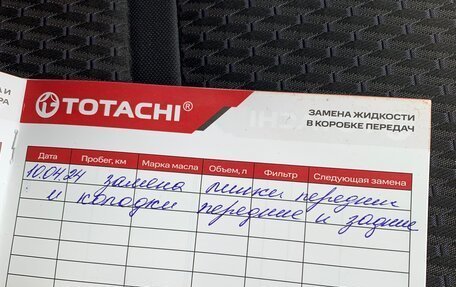 TOTACHI®
ЗАМЕНА ЖИДКОСТИ
В КОРОБКЕ ПЕРЕДАЧ
Дата Пробег, км Марка масла Объем, л Фильтр Следующая замена
10.04.24 замена линки передние
и колодки передние и задние